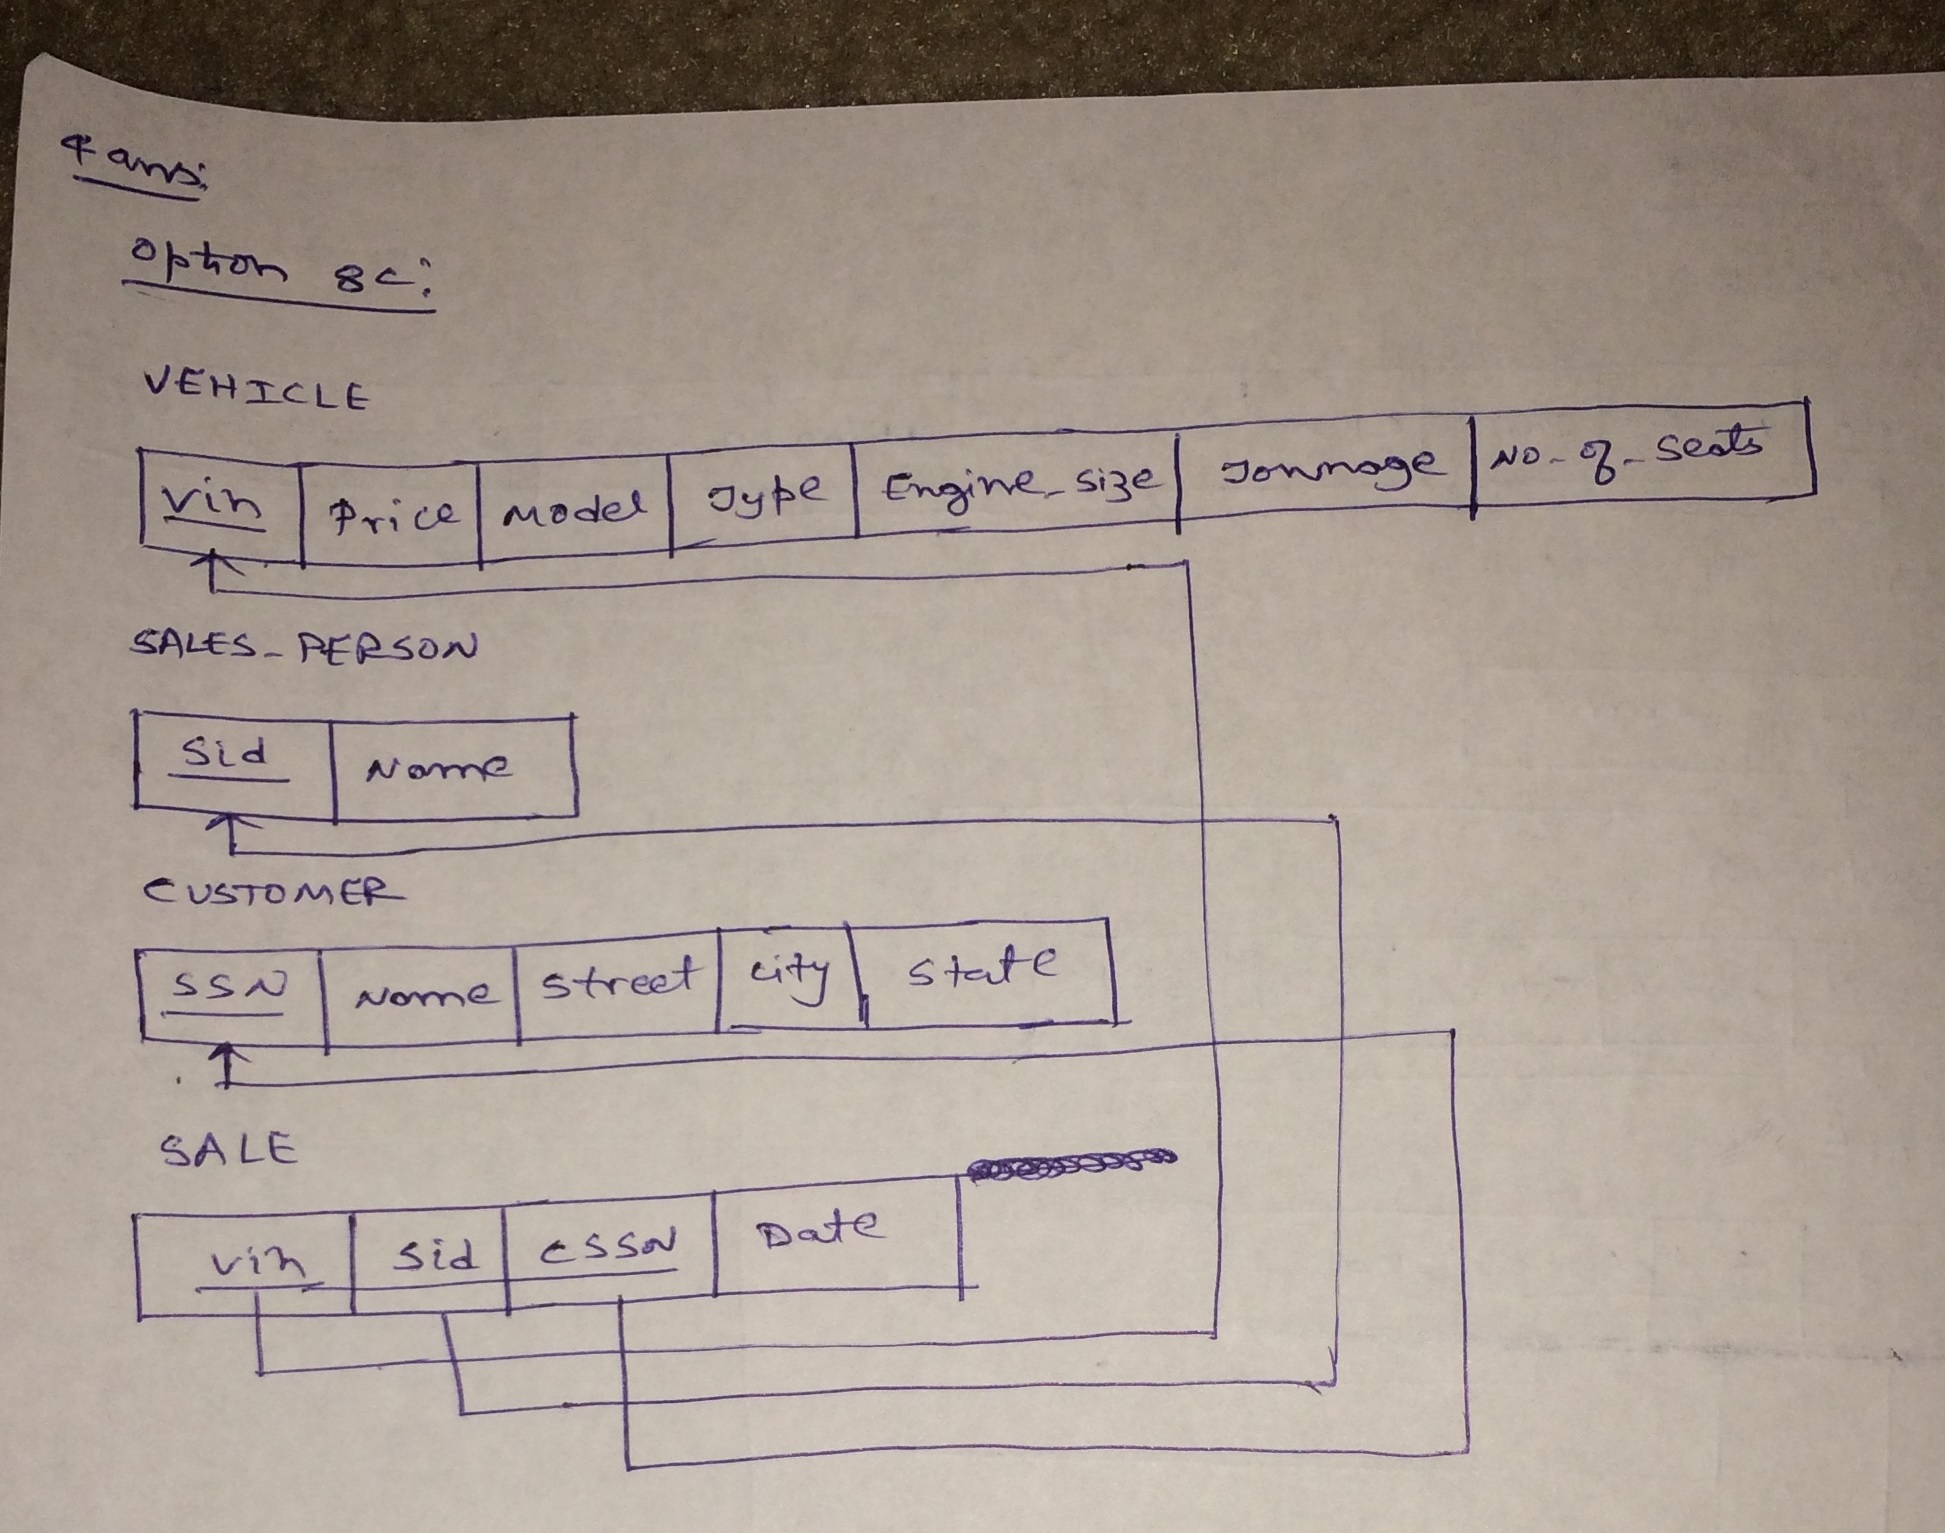 4 ans:
Option 8c:
VEHICLE
Vin Price Model Type Engine_Size Tonnage No_of_Seats
SALES_PERSON
Sid Name
CUSTOMER
SSN Name Street City State
SALE
Vin Sid CSSN Date